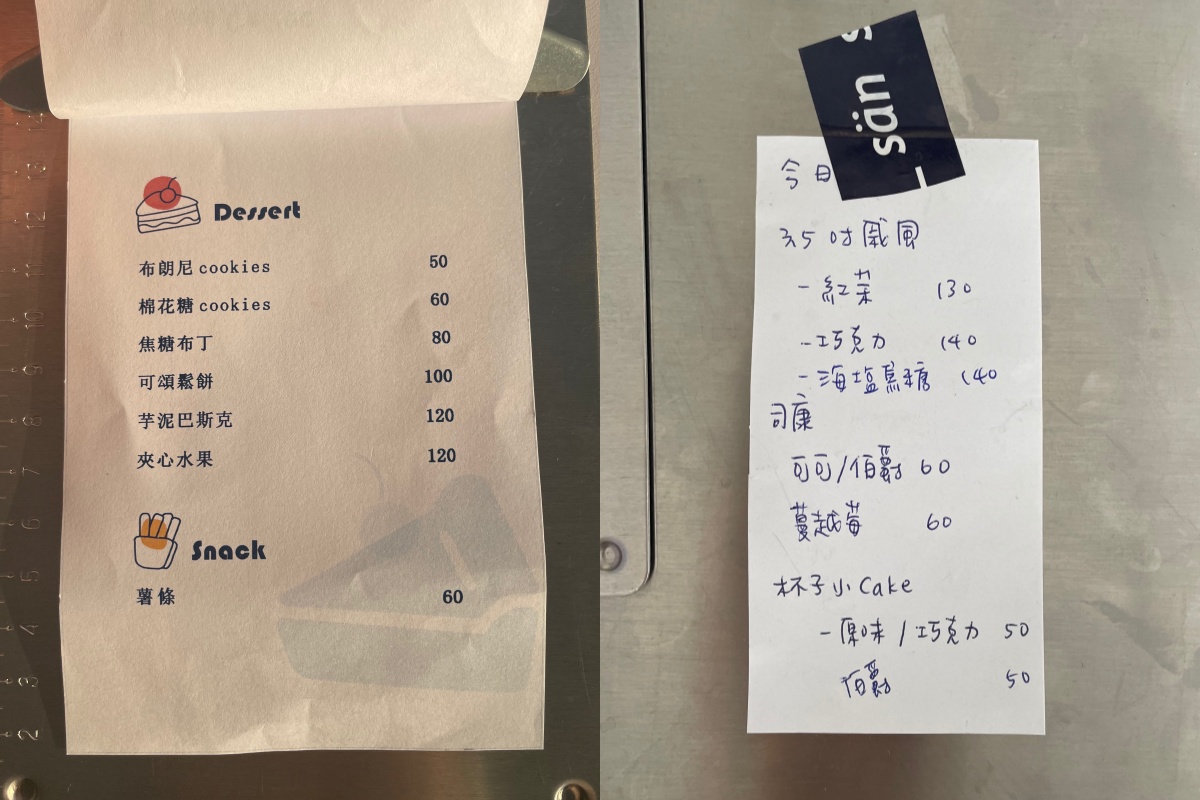 Dessert
布朗尼 cookies 50
棉花糖 cookies 60
焦糖布丁 80
可頌鬆餅 100
芋泥巴斯克 120
夾心水果 120
Snack
薯條 60
14
13
12
11
10
9
8
7
6
5
4
3
2
sän s
今日
3.5吋戚風
- 紅茶 130
- 巧克力 140
- 海塩焦糖 140
司康
可可/伯爵 60
蔓越莓 60
杯子小Cake
- 原味 / 巧克力 50
伯爵 50